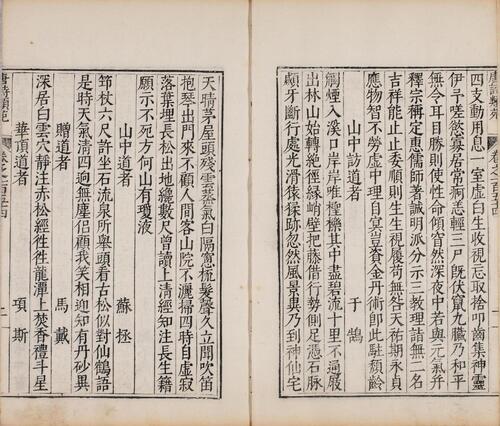 唐詩類苑 卷之一百五十四
四支動用息一室虛白生收視忘取捨叩齒集神靈
伊予嗟慾寡居常痾恙輕三尸既伏竄九臟乃和平
無令耳目勝則使性命傾窅然深夜中若與元氣并
釋宗稱定惠儒師著誠明派分示三教理詣無二名
吉祥能止止委順則生生視履苟無咎天祐期永貞
應物智不勞虛中理自冥豈資金丹術即此駐頹齡
山中訪道者 于鵠
觸煙入溪口岸岸唯檉櫟其中盡碧流十里不通屐
出林山始轉絕徑緣峭壁把藤借行勢側足憑石脉
牙斷行處光滑猿猱跡忽然風景異乃到神仙宅
天晴茅屋頭殘雲蒸氣白隔窻梳髮聲久立聞吹笛
抱琴出門來不顧人間客山院不灑掃四時自虛寂
落葉埋長松出地纔數尺曾讀上清經知注長生籍
願示不死方何山有瓊液
山中道者 蘇拯
筇杖六尺許坐石流泉所舉頭看古松似對仙鶴語
是時天氣清四迥無塵侶顧我笑相迎知有丹砂異
贈道者 馬戴
深居白雲穴靜注赤松經徃徃龍潭上焚香禮斗星
華頂道者 項斯
唐詩類苑 卷之一百五十四 二